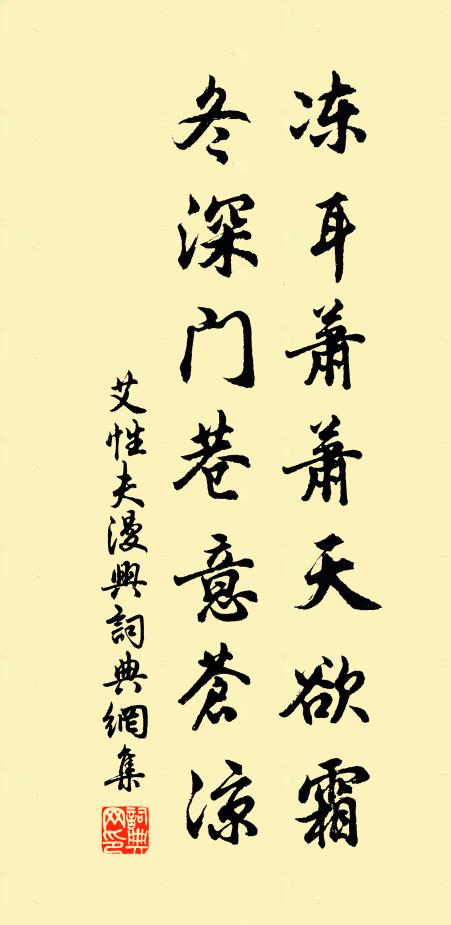 冻耳萧萧天欲霜
冬深门巷意苍凉
艾性夫漫興詞典網集
詞典網印